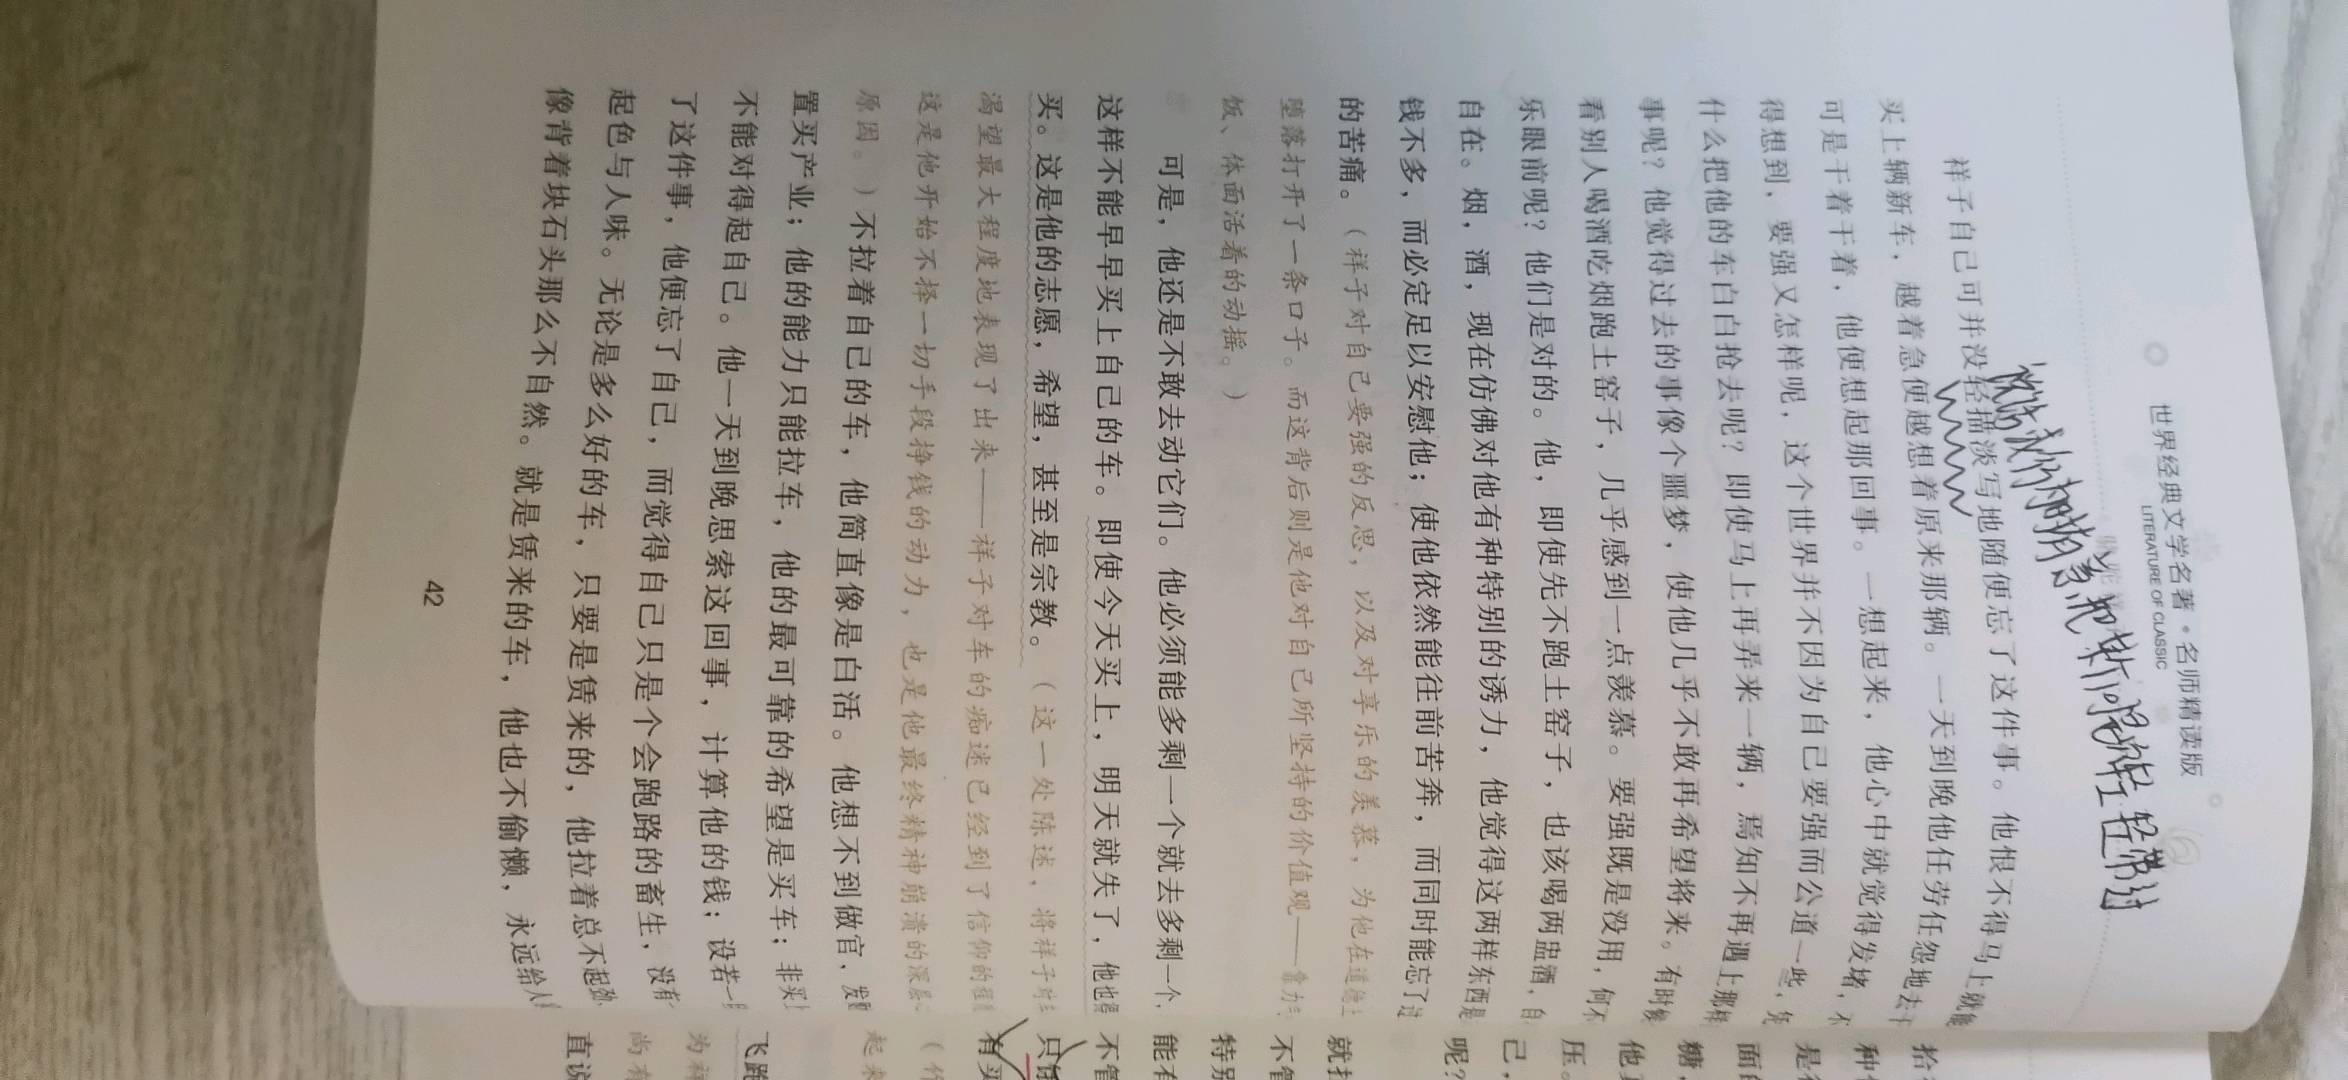 世界经典文学名著·名师精读版
LITERATURE OF CLASSIC
祥子自己可并没轻描淡写地随便忘了这件事。他恨不得马上就能
买上辆新车，越着急便越想着原来那辆。一天到晚他任劳任怨地去干
可是干着干着，他便想起那回事。一想起来，他心中就觉得发堵，不
得想到，要强又怎样呢，这个世界并不因为自己要强而公道一些，凭
什么把他的车白白抢去呢？即使马上再弄来一辆，焉知不再遇上那样
事呢？他觉得过去的事像个噩梦，使他几乎不敢再希望将来。有时候
看别人喝酒吃烟跑土窑子，几乎感到一点羡慕。要强既是没用，何不
乐眼前呢？他们是对的。他，即使先不跑土窑子，也该喝两盅酒，自
自在。烟，酒，现在仿佛对他有种特别的诱力，他觉得这两样东西是
钱不多，而必定足以安慰他；使他依然能往前苦奔，而同时能忘了过
的苦痛。（祥子对自己要强的反思，以及对享乐的羡慕，为他在道德上
堕落打开了一条口子。而这背后则是他对自己所坚持的价值观——靠力
饭、体面活着的动摇。）
可是，他还是不敢去动它们。他必须能多剩一个就去多剩一个，
这样不能早早买上自己的车。即使今天买上，明天就失了，他也得
买。这是他的志愿，希望，甚至是宗教。（这一处陈述，将祥子对车
渴望最大程度地表现了出来——祥子对车的痴迷已经到了信仰的程度
这是他开始不择一切手段挣钱的动力，也是他最终精神崩溃的深层
原因。）不拉着自己的车，他简直像是白活。他想不到做官，发财
置买产业；他的能力只能拉车，他的最可靠的希望是买车；非买上
不能对得起自己。他一天到晚思索这回事，计算他的钱；设若一旦
了这件事，他便忘了自己，而觉得自己只是个会跑路的畜生，没有
起色与人味。无论是多么好的车，只要是赁来的，他拉着总不起劲
像背着块石头那么不自然。就是赁来的车，他也不偷懒，永远给人
42
拾
种
是
面
糖
他
压。
己，
呢？
就
不管
特别
能有
不管
只
有买
（作
起来
飞跑
为祥
尚有
直说